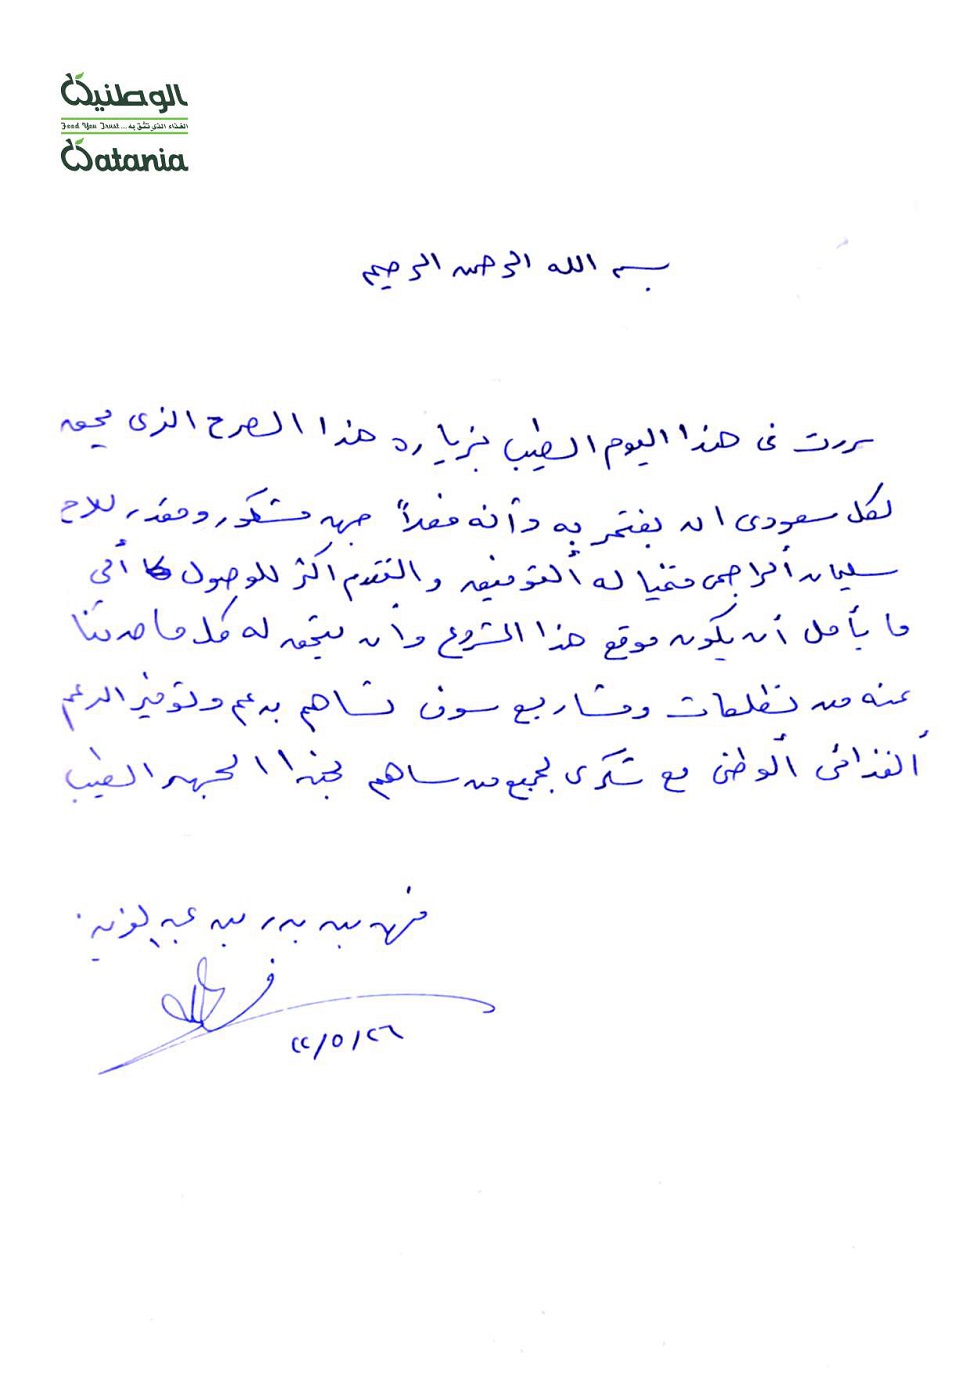 الوطنية
Food You Trust... الغذاء الذي تثق به
Watania
بسم الله الرحمن الرحيم
سررت في هذا اليوم الطيب بزياره هذا الصرح الذي يحق
لكل سعودي ان يفتخر به وأنه فعلاً جهد مشكور ومقدر للاخ
سليمان الراجحي متمنيا له التوفيق والتقدم اكثر للوصول الى
ما يأمل أن يكون موقع هذا المشروع وأن يتحقق له كل ما حدثنا
عنه من تطلعات ومشاريع سوف تساهم بدعم وتوفير الدعم
الغذائي الوطني مع شكري لجميع من ساهم بهذا الجهد الطيب
فهد بن بدر بن عبدالعزيز
٢٦/٥/٢٢